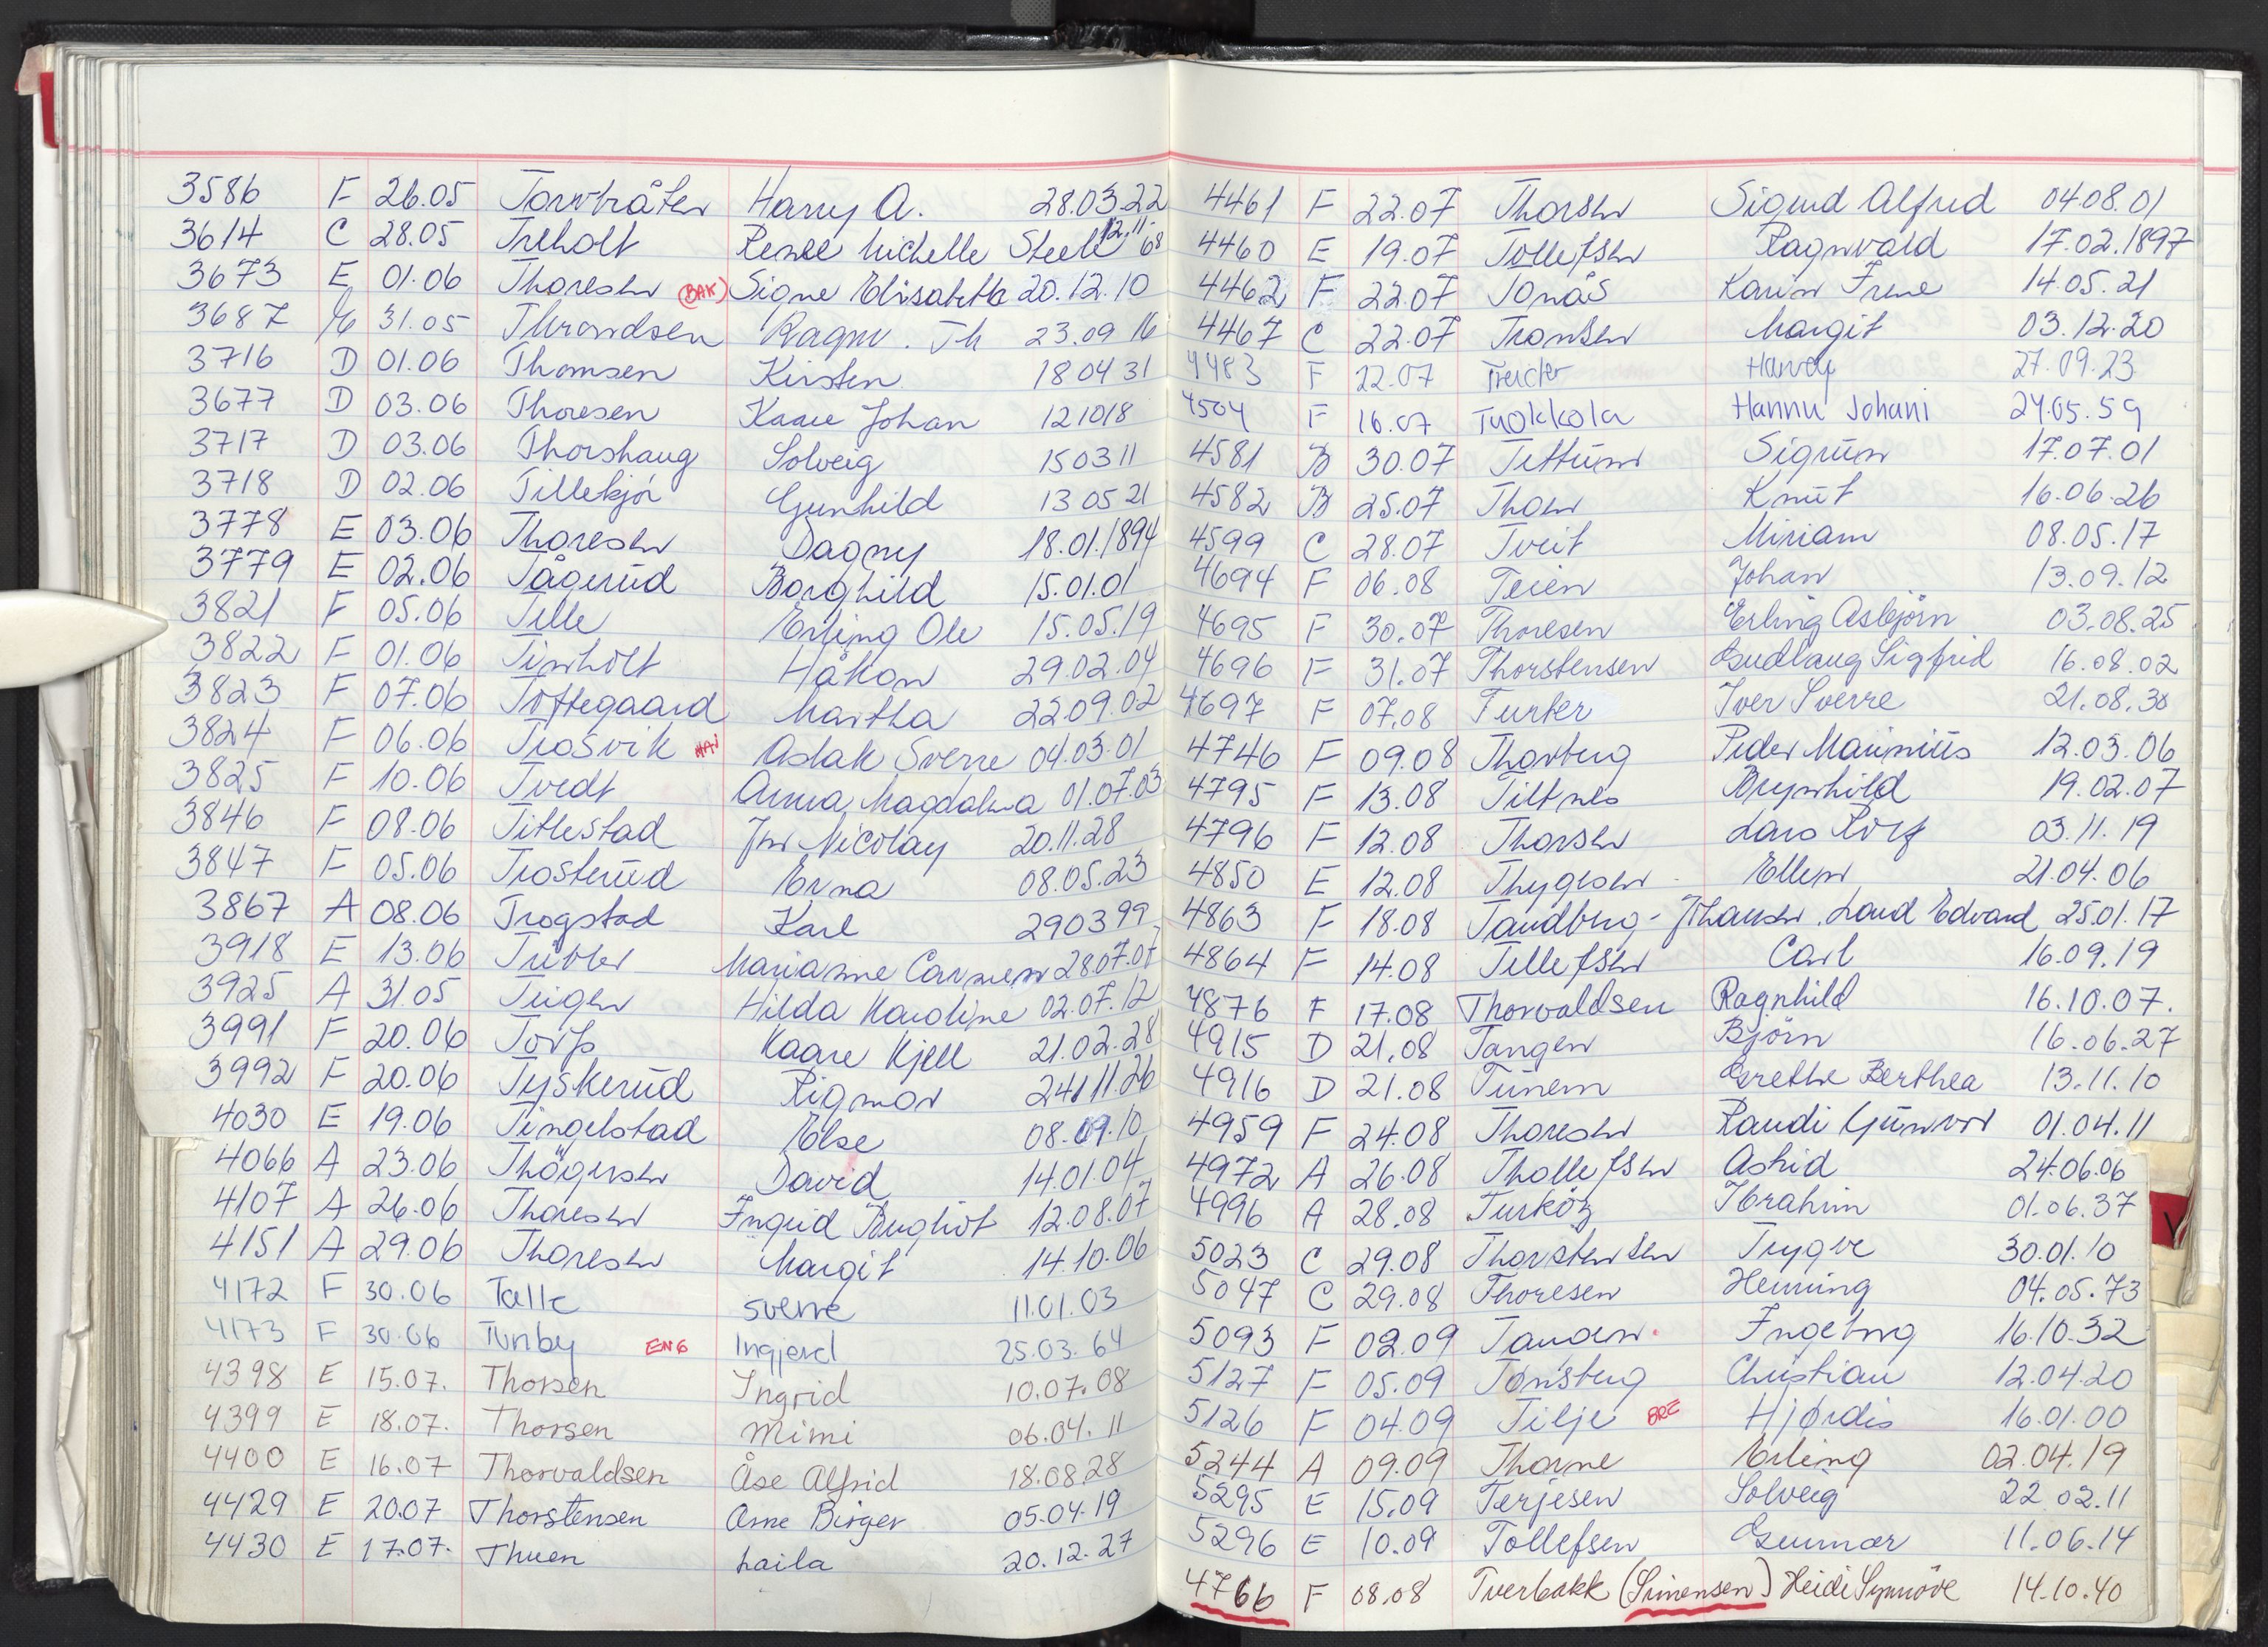 3586 F 26.05 Torvbråten Harry A. 28.03.22
3614 C 28.05 Treholt Renee Michelle Steele 12.11.68
3673 E 01.06 Thoresen (BAK) Signe Elisabeth 20.12.10
3687 E 31.05 Throndsen Ragnv. Th 23.09 16
3716 D 01.06 Thomsen Kirsten 18 04 31
3677 D 03.06 Thoresen Kaare Johan 12 10 18
3717 D 03.06 Thorshaug Solveig 15 03 11
3718 D 02.06 Tillekjør Gunhild 13 05 21
3778 E 03.06 Thoresen Dagny 18.01.1894
3779 E 02.06 Tågerud Borghild 15.01.01
3821 F 05.06 Tille Erling Ole 15.05.19
3822 F 01.06 Timholt Håkon 29.02.04
3823 F 07.06 Toftegaard Martha 22.09.02
3824 F 06.06 Trosvik Aslak Sverre 04.03.01
3825 F 10.06 Tvedt Anna Magdalena 01.07.03
3846 F 08.06 Titlestad Jon Nicolay 20.11.28
3847 F 05.06 Trosterud Erna 08.05.23
3867 A 08.06 Trogstad Karl 29 03 99
3918 E 13.06 Marianne Carmen 28.07.07
3925 A 31.05 Teigen Hilda Karoline 02.07.12
3991 F 20.06 Torp Kaare Kjell 21.02.28
3992 F 20.06 Tyskerud Rigmor 24.11.26
4030 E 19.06 Tingelstad Else 08.09.10
4066 A 23.06 Thögersen David 14.01.04
4107 A 26.06 Thoresen Ingrid Bergliot 12.08.07
4151 A 29.06 Thoresen Margit 14.10.06
4172 F 30.06 Talle Sverre 11.01.03
4173 F 30.06 Tunby ENG Ingjerd 25.03.64
4398 E 15.07. Thorsen Ingrid 10.07.08
4399 E 18.07. Thorsen Mimi 06.04.11
4400 E 16.07 Thorvaldsen Åse Alfrid 18.08 28
4429 E 20.07 Thorstensen Arne Birger 05.04.19
4430 E 17.07. Thuen Laila 20.12.27
4461 F 22.07 Thorsen Sigurd Alfred 04.08.01
4460 E 19.07 Tollefsen Ragnvald 17.02.1897
4462 F 22.07 Tonås Karin Irene 14.05.21
4467 C 22.07 Tronsen Margit 03.12.20
4483 F 22.07 27.09.23
4504 F 16.07 Tuokkola Hannu Johani 24.05.59
4581 B 30.07 Tettum Sigrun 17.07.01
4582 B 25.07 Thoen Knut 16.06.26
4599 C 28.07 Tveit Miriam 08.05.17
4694 F 06.08 Teien Johan 13.09.12
4695 F 30.07 Thoresen Erling Asbjørn 03.08.25
4696 F 31.07 Thorstensen Gudlaug Sigfrid 16.08.02
4697 F 07.08 Turter Iver Sverre 21.08.30
4746 F 09.08 Thorberg Peder Marinius 12.03.06
4795 F 13.08 Tiltnes Brynhild 19.02.07
4796 F 12.08 Thorsen Lars Rolf 03.11.19
4850 E 12.08 Thygesen Ellen 21.04.06
4863 F 18.08 Tandberg-Johansen Edvard 25.01.17
4864 F 14.08 Tellefsen Carl 16.09.19
4876 F 17.08 Thorvaldsen Ragnhild 16.10.07.
4915 D 21.08 Tangen Björn 16.06.27
4916 D 21.08 Tunem Grethe Berthea 13.11.10
4959 F 24.08 Thoresen Randi Gunvor 01.04.11
4972 A 26.08 Thollefsen Astrid 24.06.06
4996 A 28.08 Turköz Ibrahim 01.06.37
5023 C 29.08 Thorstensen Trygve 30.01.10
5047 C 29.08 Thoresen Henning 04.05.73
5093 F 02.09 Tanden Ingeborg 16.10.32
5127 F 05.09 Tønsberg Christian 12.04.20
5126 F 04.09 Tilje BRE Hjørdis 16.01.00
5244 A 09.09 Thorne Erling 02.04.19
5295 E 15.09 Terjesen Solveig 22 02.11
5296 E 10.09 Tollefsen Gunnar 11.06.14
4766 F 08.08 Tverbakk (Simensen) Heidi Synnöve 14.10.40